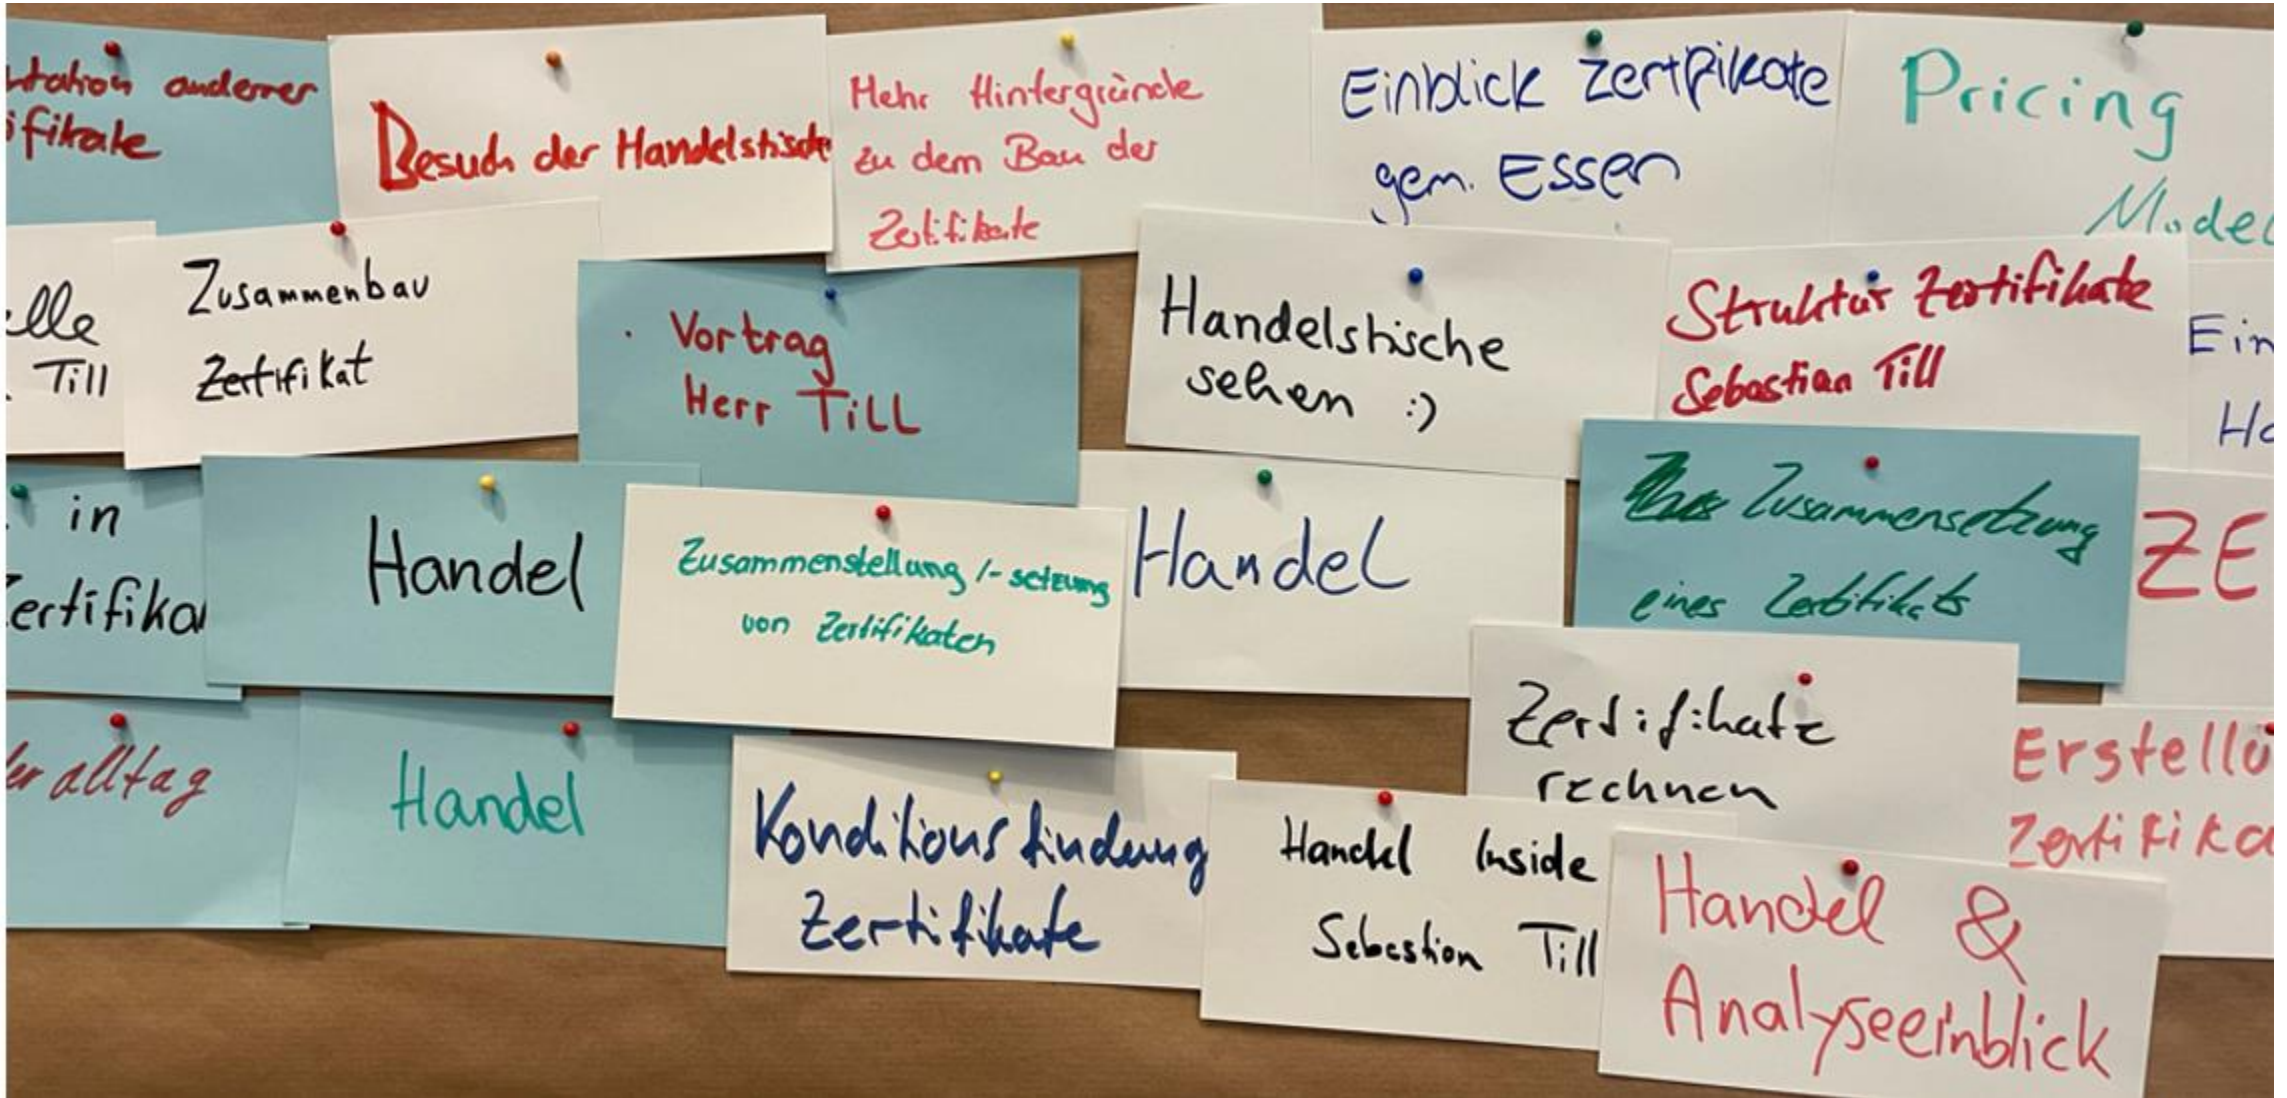 anderer
Besuch der Handelstische
Mehr Hintergründe
zu dem Bau der
Zertifikate
Einblick Zertifikate
gem. Essen
Pricing
Model
Till
Zusammenbau
Zertifikat
Vortrag
Herr TiLL
Handelstische
sehen :)
Struktur Zertifikate
Sebastian Till
in
Handel
Zusammenstellung /-setzung
von Zertifikaten
Handel
Zusammensetzung
eines Zertifikats
ZE
alltag
Handel
Konditionsfindung
Zertifikate
Handel Inside
Sebastian Till
Zertifikate
rechnen
Handel &
Analyseeinblick